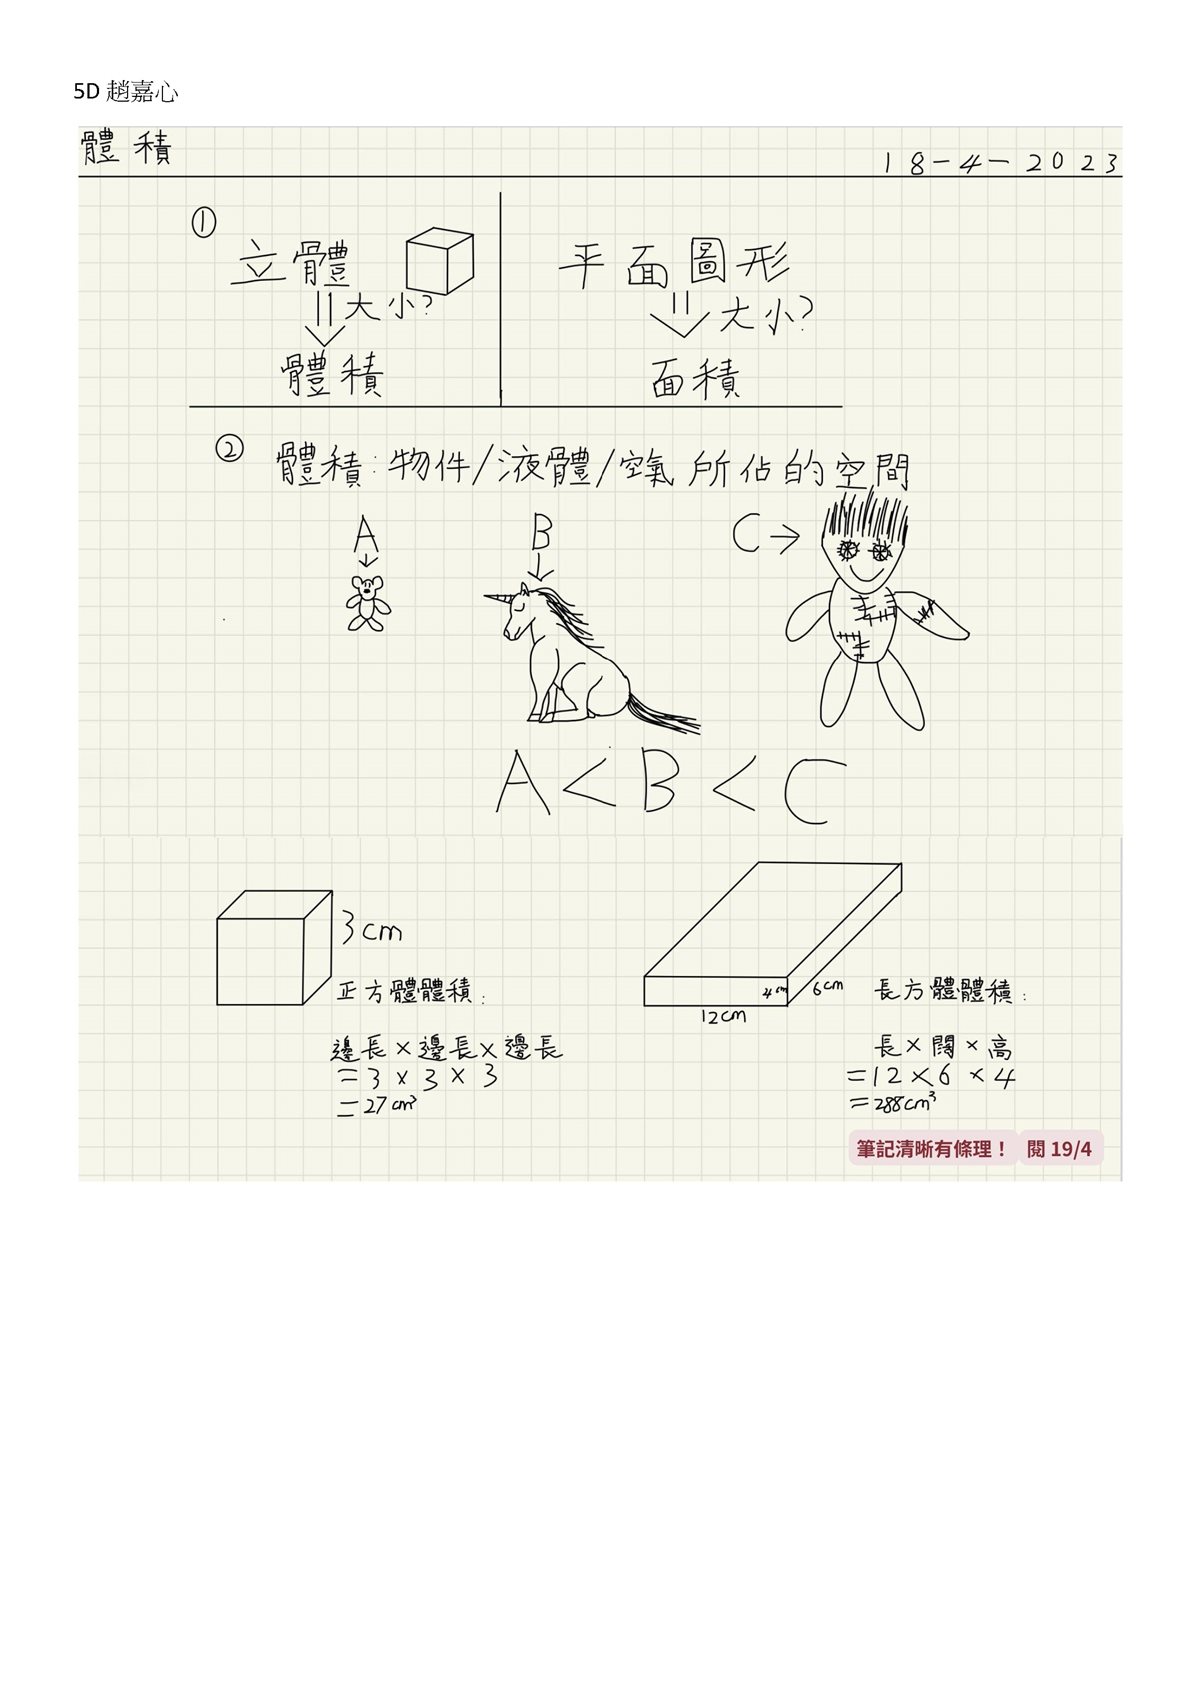 5D 趙嘉心
體積
18-4-2023
①
立體
大小?
體積
平面圖形
大小?
面積
② 體積:物件/液體/空氣所佔的空間
A
B
C→
A<B<C
3cm
正方體體積:
邊長×邊長×邊長
=3×3×3
=27cm³
4cm
6cm
12cm
長方體體積:
長×闊×高
=12×6×4
=288cm³
筆記清晰有條理! 閱 19/4